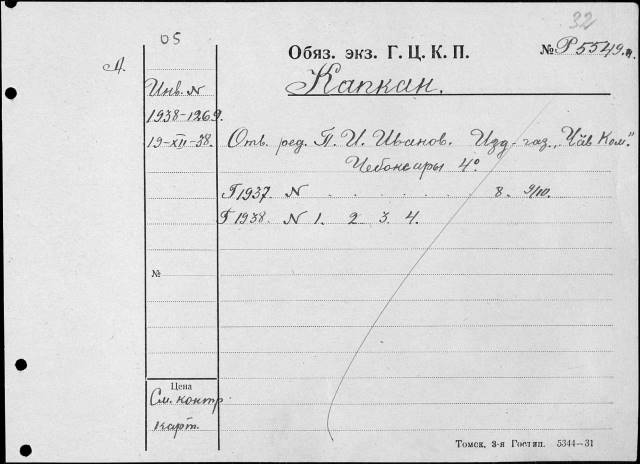 32
05
Обяз. экз. Г. Ц. К. П.
№ Р5549.
Капкан.
Инв. N
1938-1269.
19-XII-38.
Отв. ред. П. И. Иванов. Изд-газ. „Чăв Ком."
Чебоксары 4°
Г 1937. N . . . . . . . 8. 9/10.
Г 1938. N 1. 2 3. 4.
№
Цена
См. контр
карт.
Томск, 3-я Гостип. 5344—31